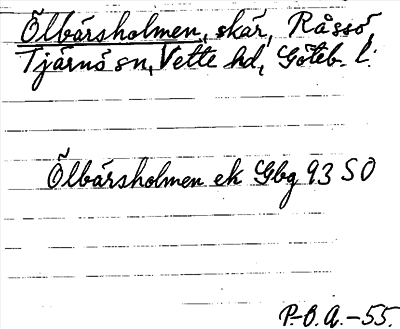 Ölbärsholmen, skär, Råssö,
Tjärnö sn, Vette hd, Göteb. l.
Ölbärsholmen ek Gbg 93 SO
P-O. A. -55.